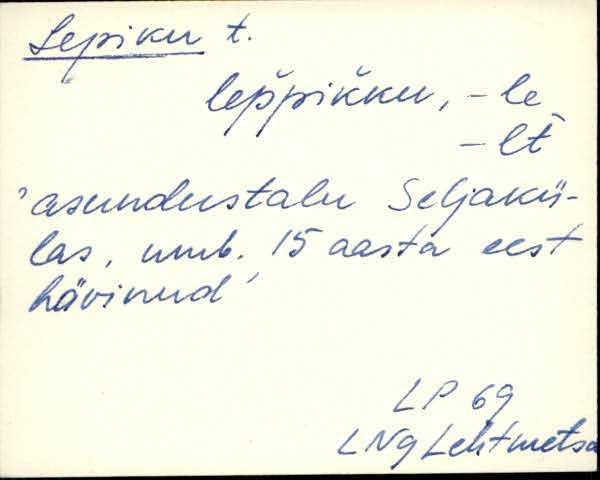 Lepiku t.
lep̆pik̆ku, -le
-lt̆
'asundustalu Seljakü-
las, umb. 15 aasta eest
hävinud'
LP 69
LNg Lehtmetsa